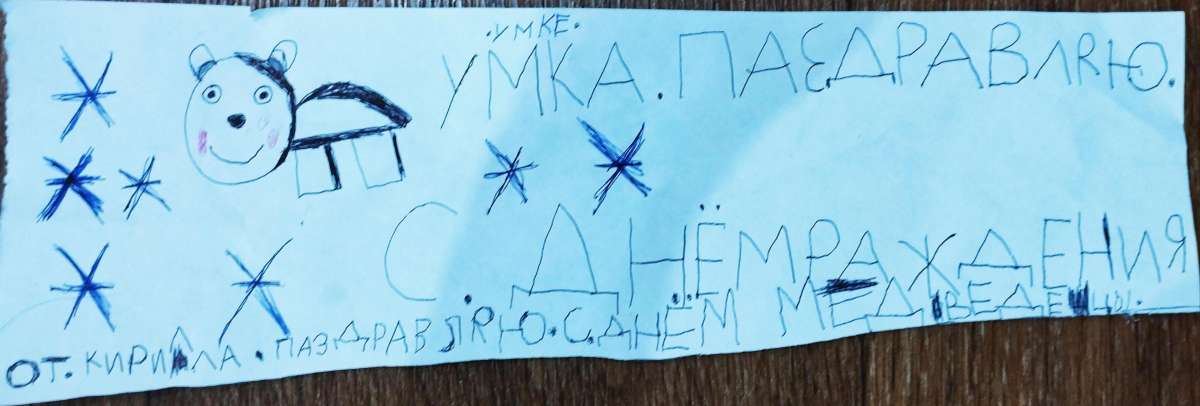 .УМКЕ.
УМКА. ПАЗДРАВЛЯЮ.
С. ДНЁМ РАЖДЕНИЯ
ОТ. КИРИЛЛА. ПАЗДРАВЛЯЮ. С. ДНЁМ МЕДВЕДЕЦЫ.